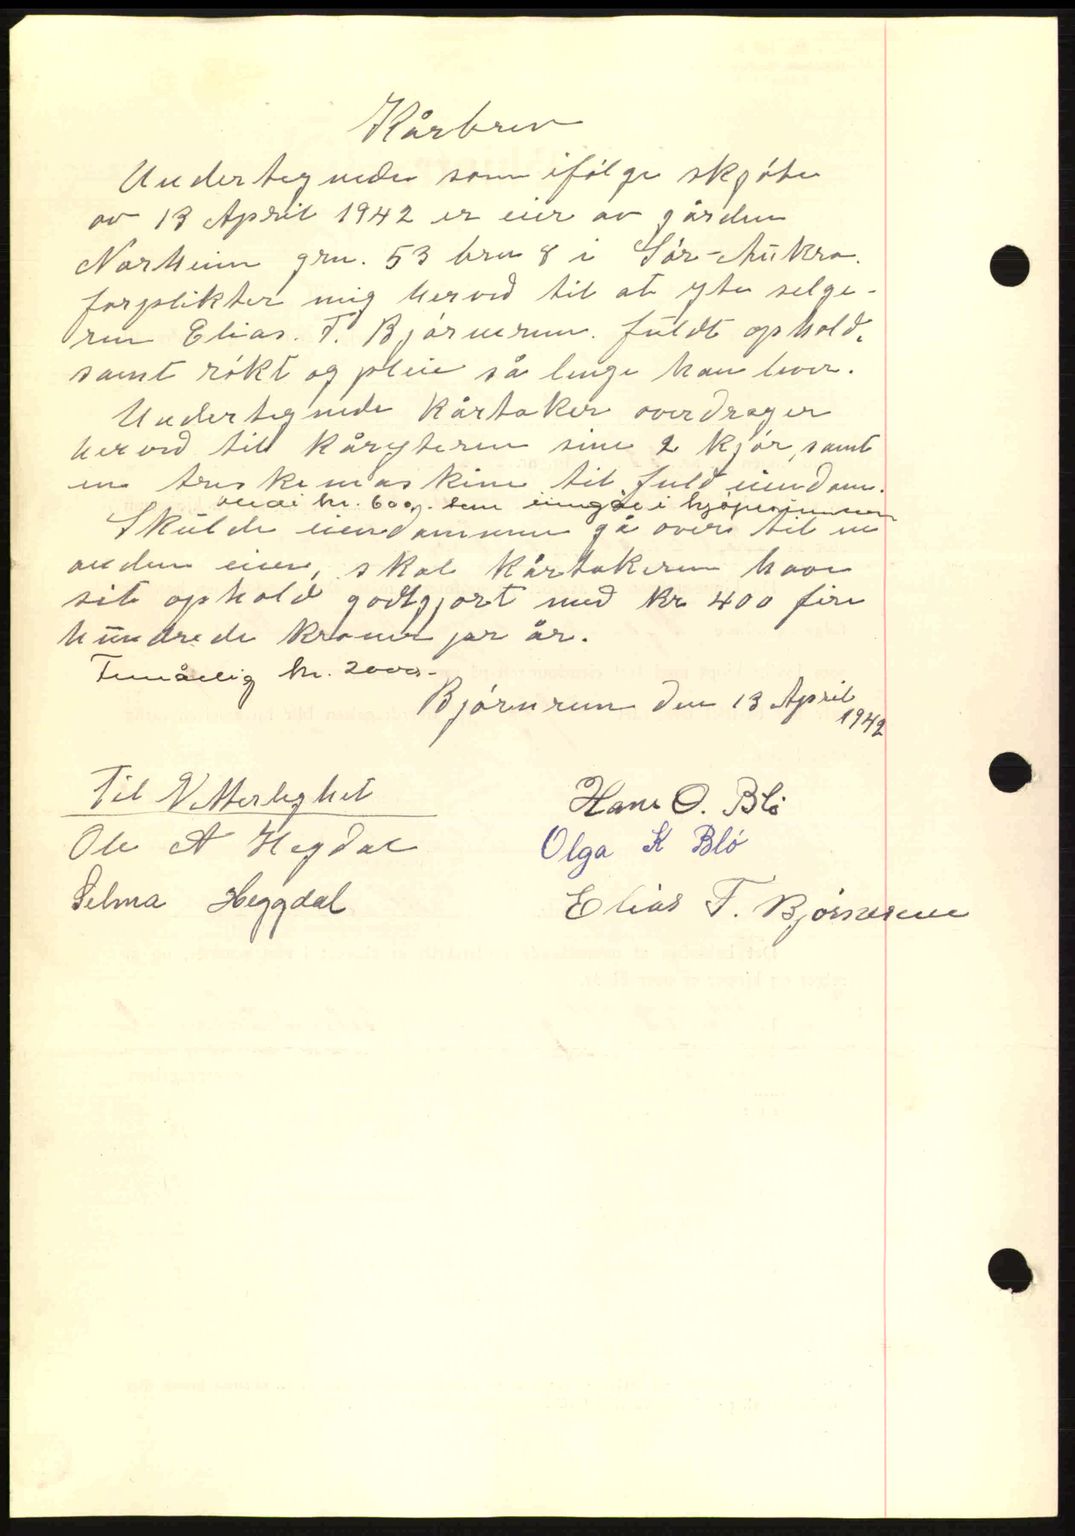 Kårbrev
Undertegnede som ifølge skjøte
av 13 April 1942 er eier av gården
Norheim grn. 53 brn 8 i Sør-Aukra.
forplikter mig herved til at yte selge-
ren Elias. T. Bjørnerem. fuldt ophold.
samt røkt og pleie så lenge han lever.
Undertegnede kårtaker overdrager
herved til kåryteren sine 2 kjør, samt
en treskemaskine til fuld eiendom.
verdi kr. 600,- som inngår i kjøpesummen
Skulde eiendommen gå over til en
anden eier, skal kårtakeren have
sit ophold godtgjort med kr 400 fire
hundrede kroner pr år.
Femårlig kr. 2000.-
Bjørnrem den 13 April
1942
Til Vitterlighet
Hans O. Blø
Ole A Hegdal
Olga K Blø
Selma Heggdal
Elias T. Bjørnerem